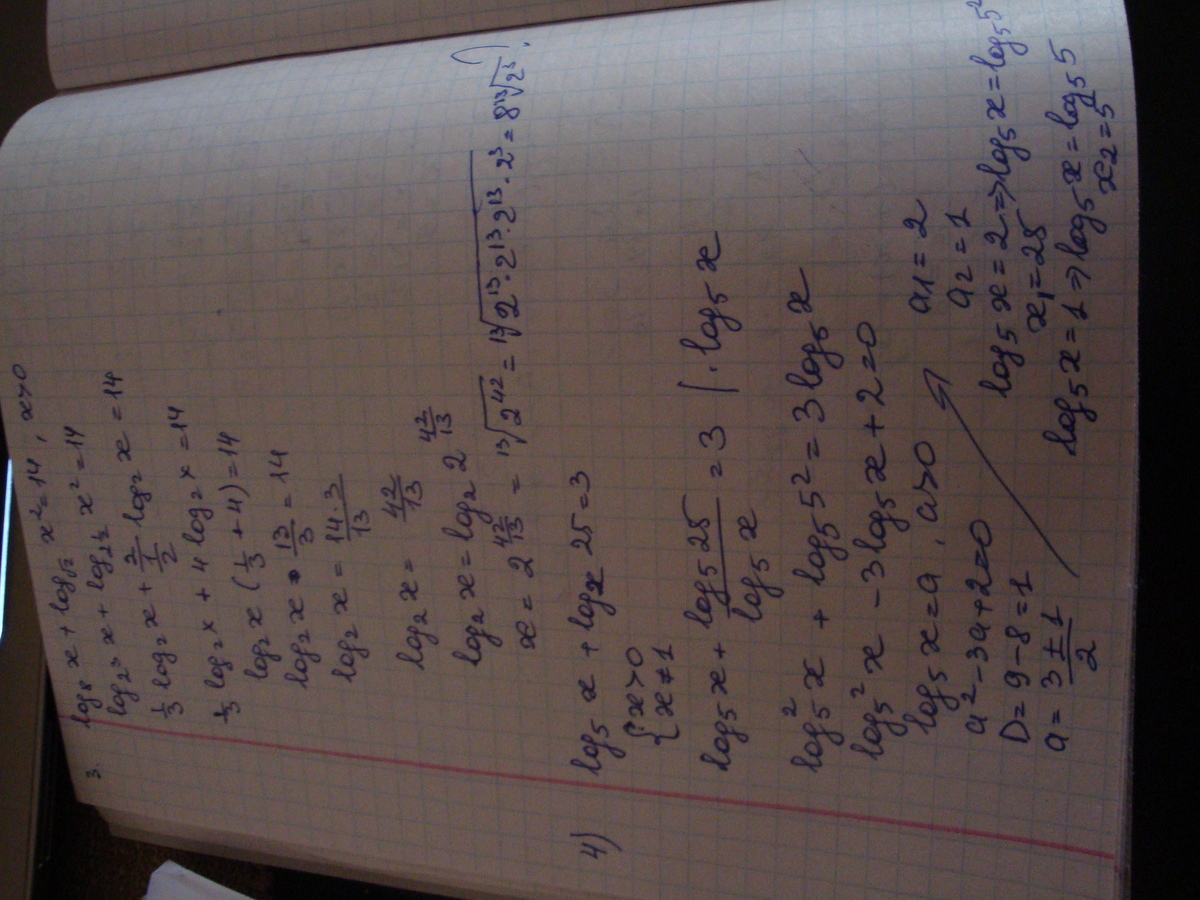 3. log₈ x + log_√2 x² = 14, x>0
log_2³ x + log_2^½ x² = 14
1/3 log₂ x + 2/(1/2) log₂ x = 14
1/3 log₂ x + 4 log₂ x = 14
log₂ x (1/3 + 4) = 14
log₂ x · 13/3 = 14
log₂ x = 14·3/13
log₂ x = 42/13
log₂ x = log₂ 2^(42/13)
x = 2^(42/13) = ¹³√2⁴² = ¹³√(2¹³·2¹³·2¹³·2³) = 8 ¹³√2³.
4) log₅ x + logₓ 25 = 3
{ x>0
x≠1
log₅ x + log₅ 25 / log₅ x = 3 | · log₅ x
log₅² x + log₅ 5² = 3 log₅ x
log₅² x - 3 log₅ x + 2 = 0
log₅ x = a, a>0
a² - 3a + 2 = 0
D = 9 - 8 = 1
a = (3 ± 1)/2
a₁ = 2
a₂ = 1
log₅ x = 2 => log₅ x = log₅ 5²
x₁ = 25
log₅ x = 1 => log₅ x = log₅ 5
x₂ = 5